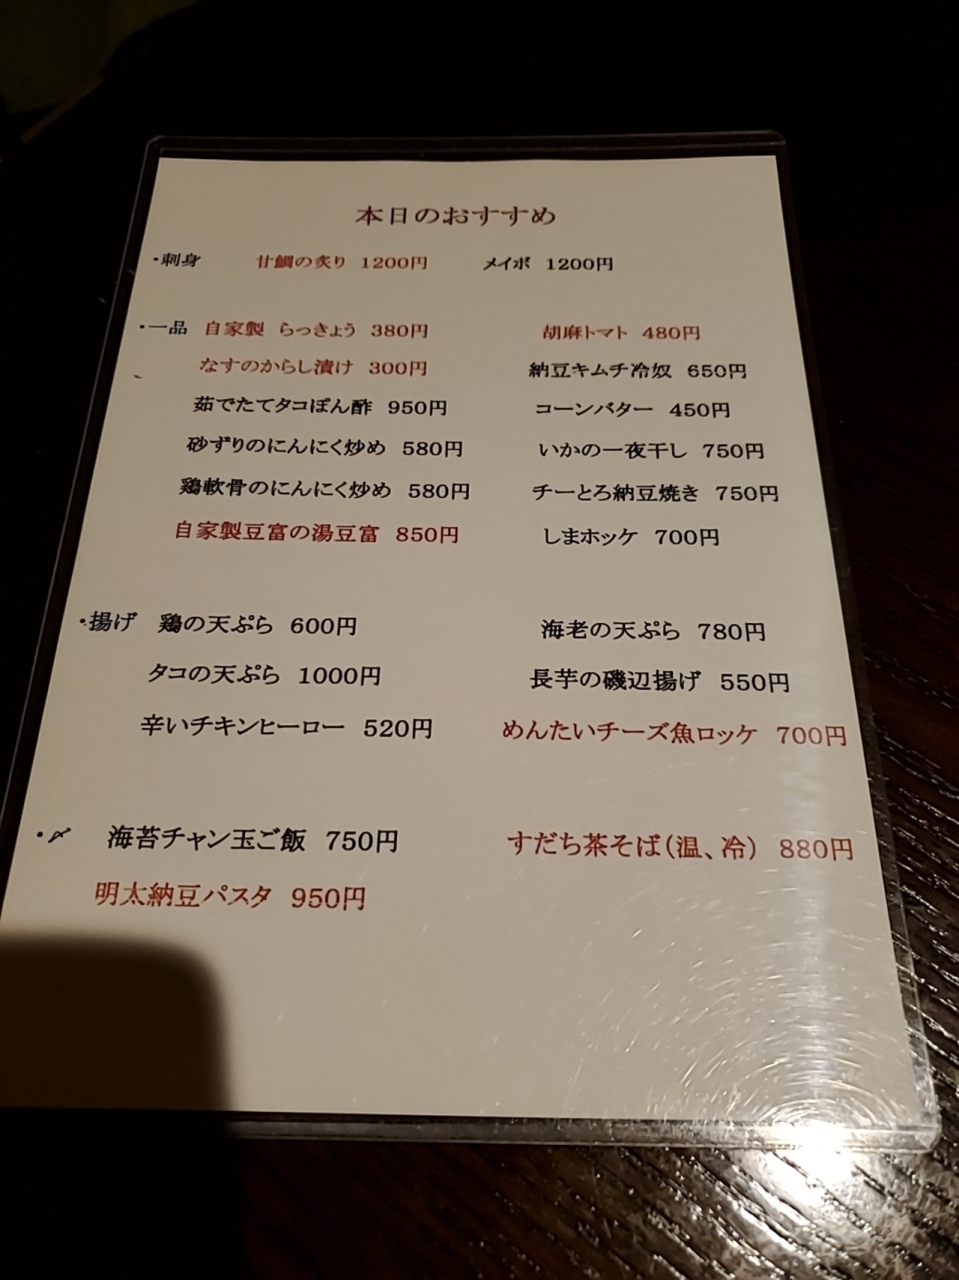 本日のおすすめ
・刺身 甘鯛の炙り 1200円 メイボ 1200円
・一品 自家製 らっきょう 380円 胡麻トマト 480円
なすのからし漬け 300円 納豆キムチ冷奴 650円
茹でたてタコぽん酢 950円 コーンバター 450円
砂ずりのにんにく炒め 580円 いかの一夜干し 750円
鶏軟骨のにんにく炒め 580円 チーとろ納豆焼き 750円
自家製豆富の湯豆富 850円 しまホッケ 700円
・揚げ 鶏の天ぷら 600円 海老の天ぷら 780円
タコの天ぷら 1000円 長芋の磯辺揚げ 550円
辛いチキンヒーロー 520円 めんたいチーズ魚ロッケ 700円
・〆 海苔チャン玉ご飯 750円 すだち茶そば(温、冷) 880円
明太納豆パスタ 950円